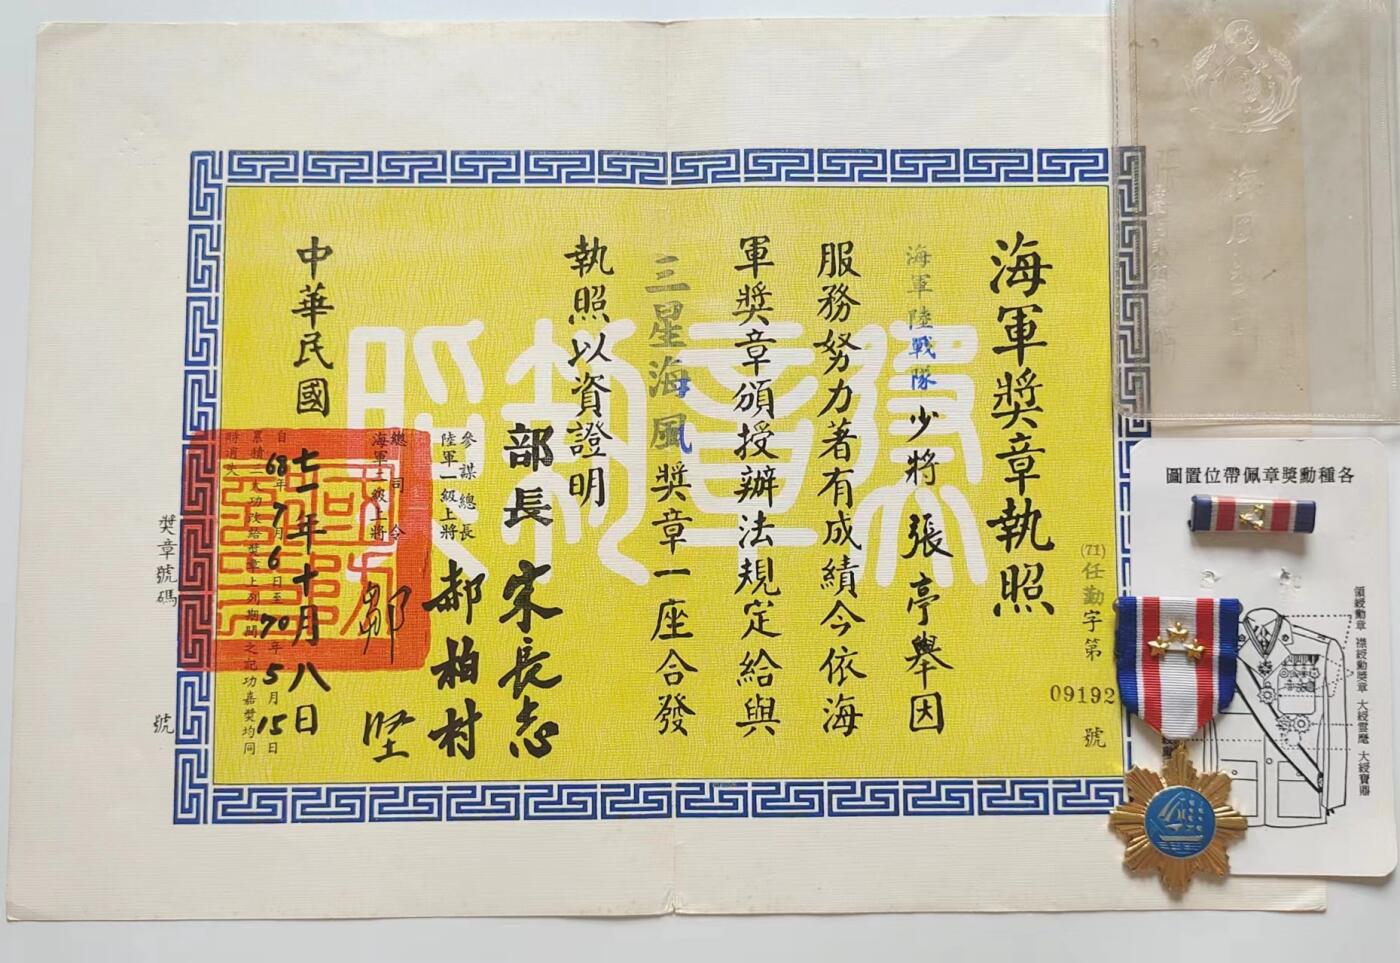 海軍獎章執照
(71)任勤字第09192號
海軍陸戰隊少將張亭舉因
服務努力著有成績今依海
軍獎章頒授辦法規定給與
三星海風獎章一座合發
執照以資證明
部長宋長志
參謀總長
陸軍一級上將
郝柏村
總司令
海軍二級上將
鄒堅
中華民國七一年十月八日
自68年7月6日至70年5月15日
累積三大功後給獎章上列期間之記功嘉獎均同
時消失
獎章號碼 號
獎章執照
海風獎章
各種勳獎章佩帶位置圖
領綬勳章
襟綬勳獎章
大綬雲麾
大綬寶鼎